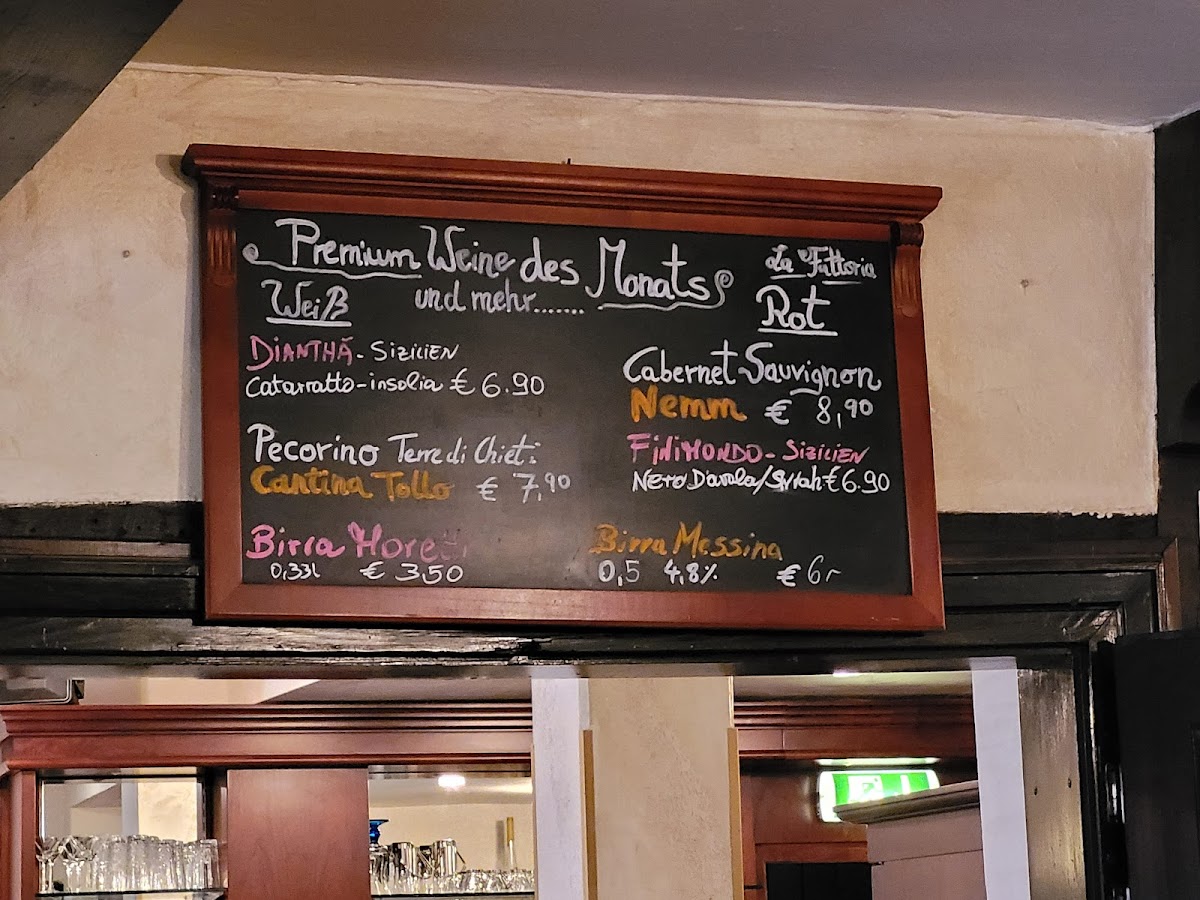 Premium Weine des Monats
und mehr.......
La Fattoria
Weiß
DIANTHÁ - SIZILIEN
Catarratto-insolia € 6.90
Pecorino Terre di Chieti
Cantina Tollo € 7,90
Birra Moretti
0,33l € 3,50
Rot
Cabernet Sauvignon
Nemm € 8,90
FINIMONDO - SIZILIEN
NERO D'avola/Syrah € 6.90
Birra Messina
0,5 4,8% € 6,-